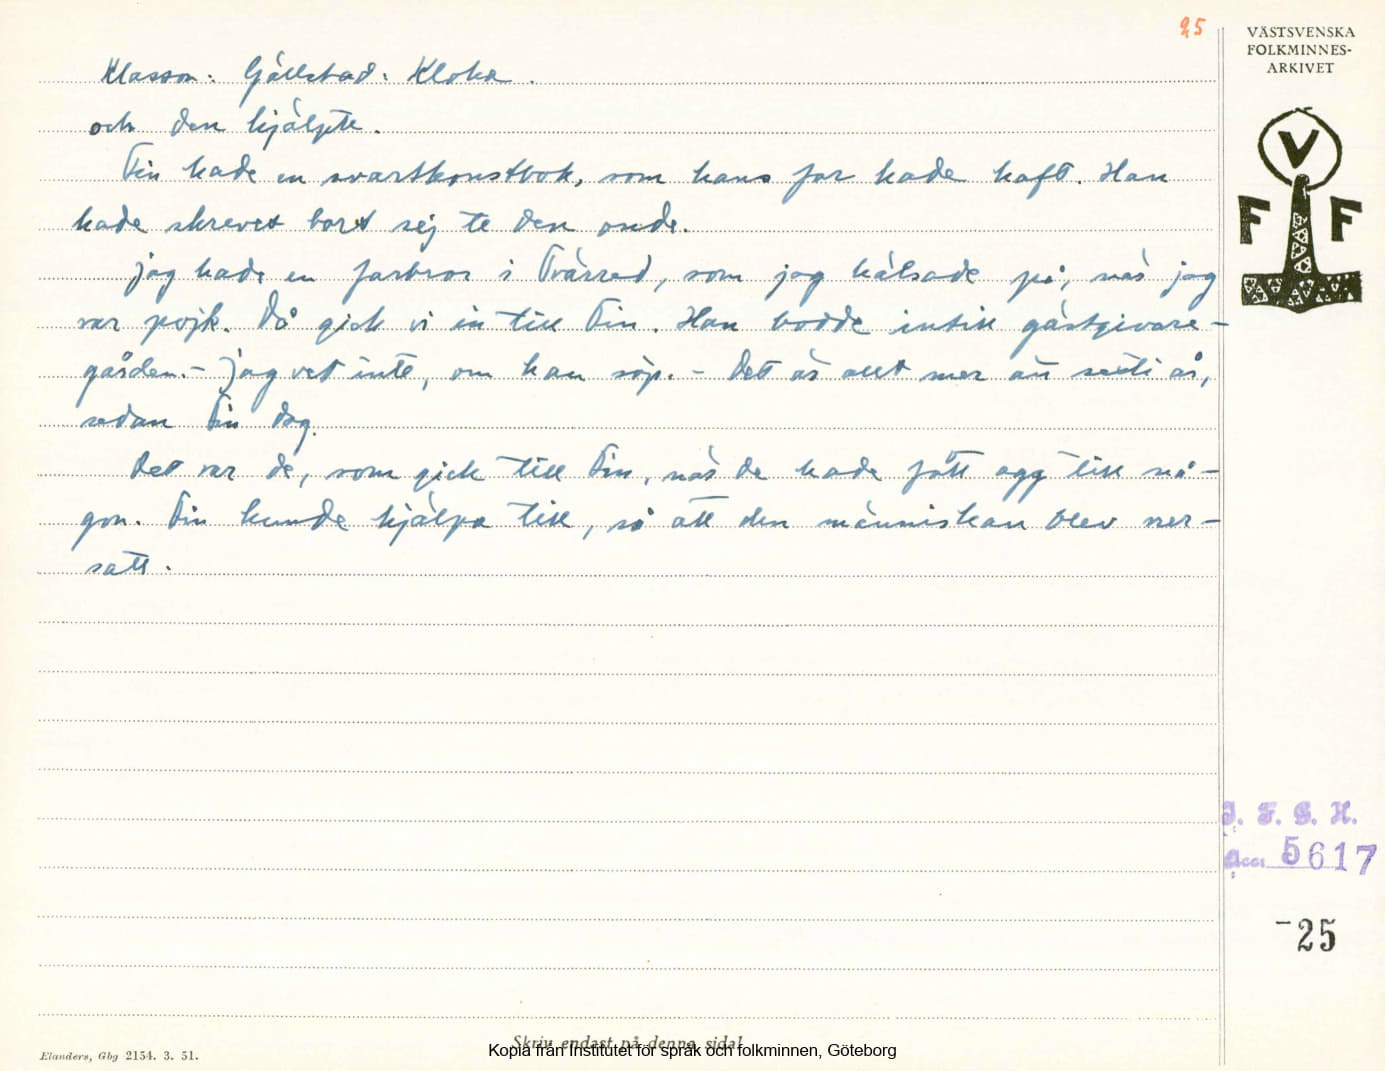 25
VÄSTSVENSKA
FOLKMINNES-
ARKIVET
V
F F
Klasson: Gällstad: Kloka.
och den hjälpte.
Fin hade en svartkonstbok, som hans far hade haft. Han
hade skrevet bort sej te den onde.
Jag hade en farbror i Tvärred, som jag hälsade på, när jag
var pojk. Då gick vi in till Fin. Han bodde intill gästgivare-
gården. - Jag vet inte, om han söp. - Det är allt mer än sexti år,
sedan Fin dog.
Det var de, som gick till Fin, när de hade fått agg till nå-
gon. Fin kunde hjälpa till, så att den människan blev ner-
satt.
I. F. G. H.
Acc. 5617
-25
Elanders, Gbg 2154. 3. 51.
Skriv endast på denna sida!
Kopia från Institutet för språk och folkminnen, Göteborg